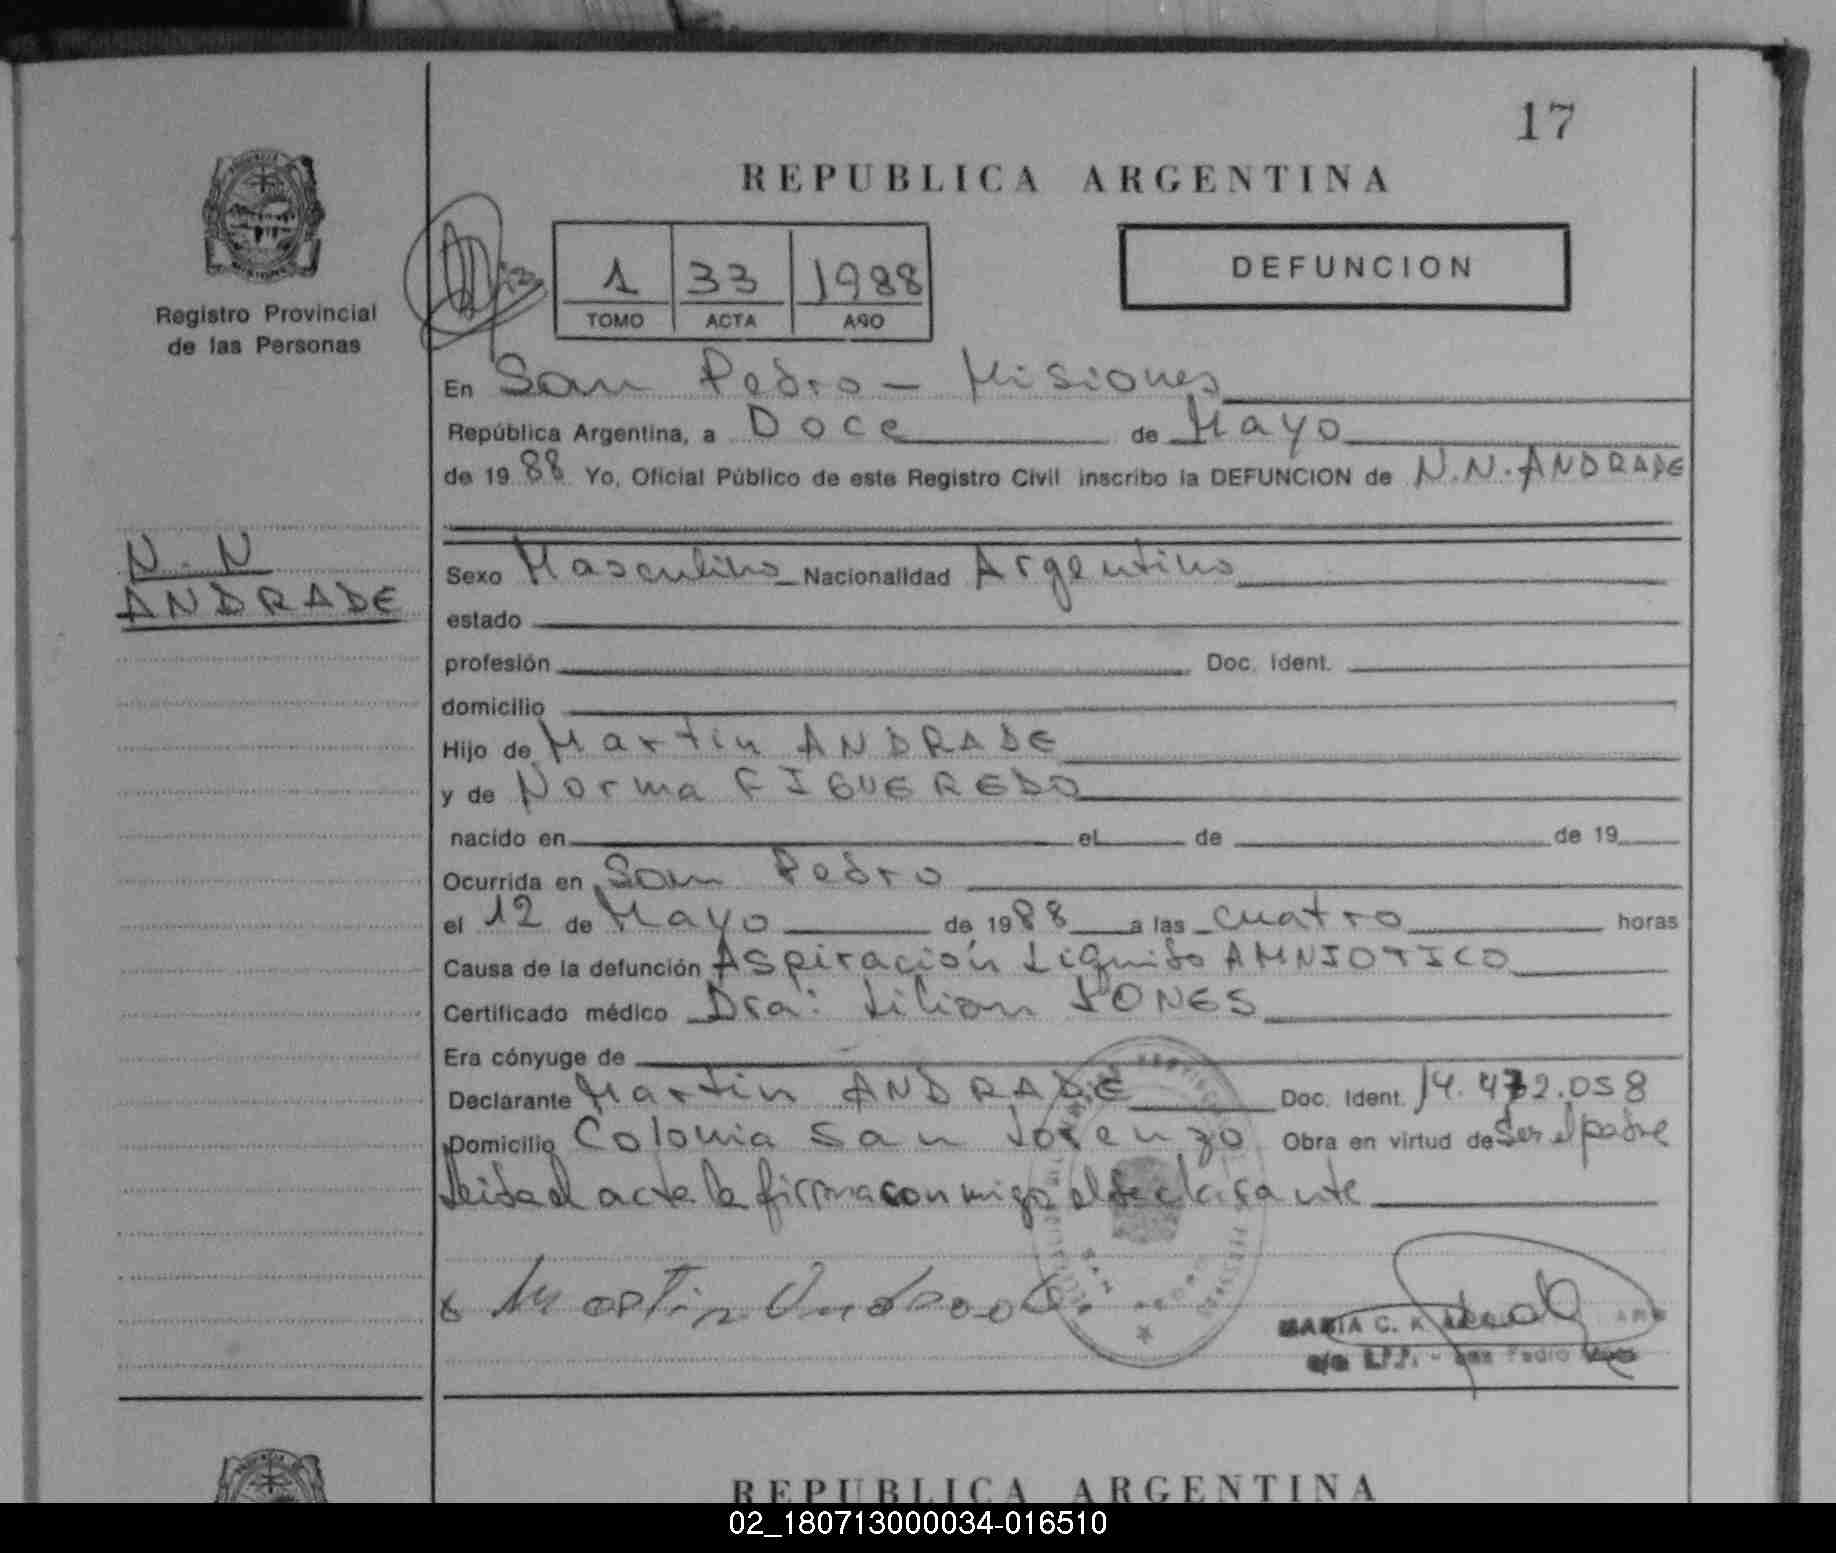 17
REPUBLICA ARGENTINA
Registro Provincial
de las Personas
1 33 1988
TOMO ACTA AÑO
DEFUNCION
En San Pedro - Misiones
República Argentina, a Doce de Mayo
de 1988 Yo, Oficial Público de este Registro Civil inscribo la DEFUNCION de N.N. ANDRADE
N.N
ANDRADE
Sexo Masculino Nacionalidad Argentino
estado
profesión Doc. Ident.
domicilio
Hijo de Martin ANDRADE
y de Norma FIGUEREDO
nacido en el de de 19
Ocurrida en San Pedro
el 12 de Mayo de 1988 a las cuatro horas
Causa de la defunción Aspiración Liquido AMNIOTICO
Certificado médico Dra: Lilian JONES
Era cónyuge de
Declarante Martin ANDRADE Doc. Ident. 14.472.058
Domicilio Colonia San Lorenzo Obra en virtud de Ser el padre
Leida el acta la firma conmigo el declarante
Martin Andrade
MARIA C. K.
San Pedro
SAN PEDRO
REPUBLICA ARGENTINA
02_180713000034-016510